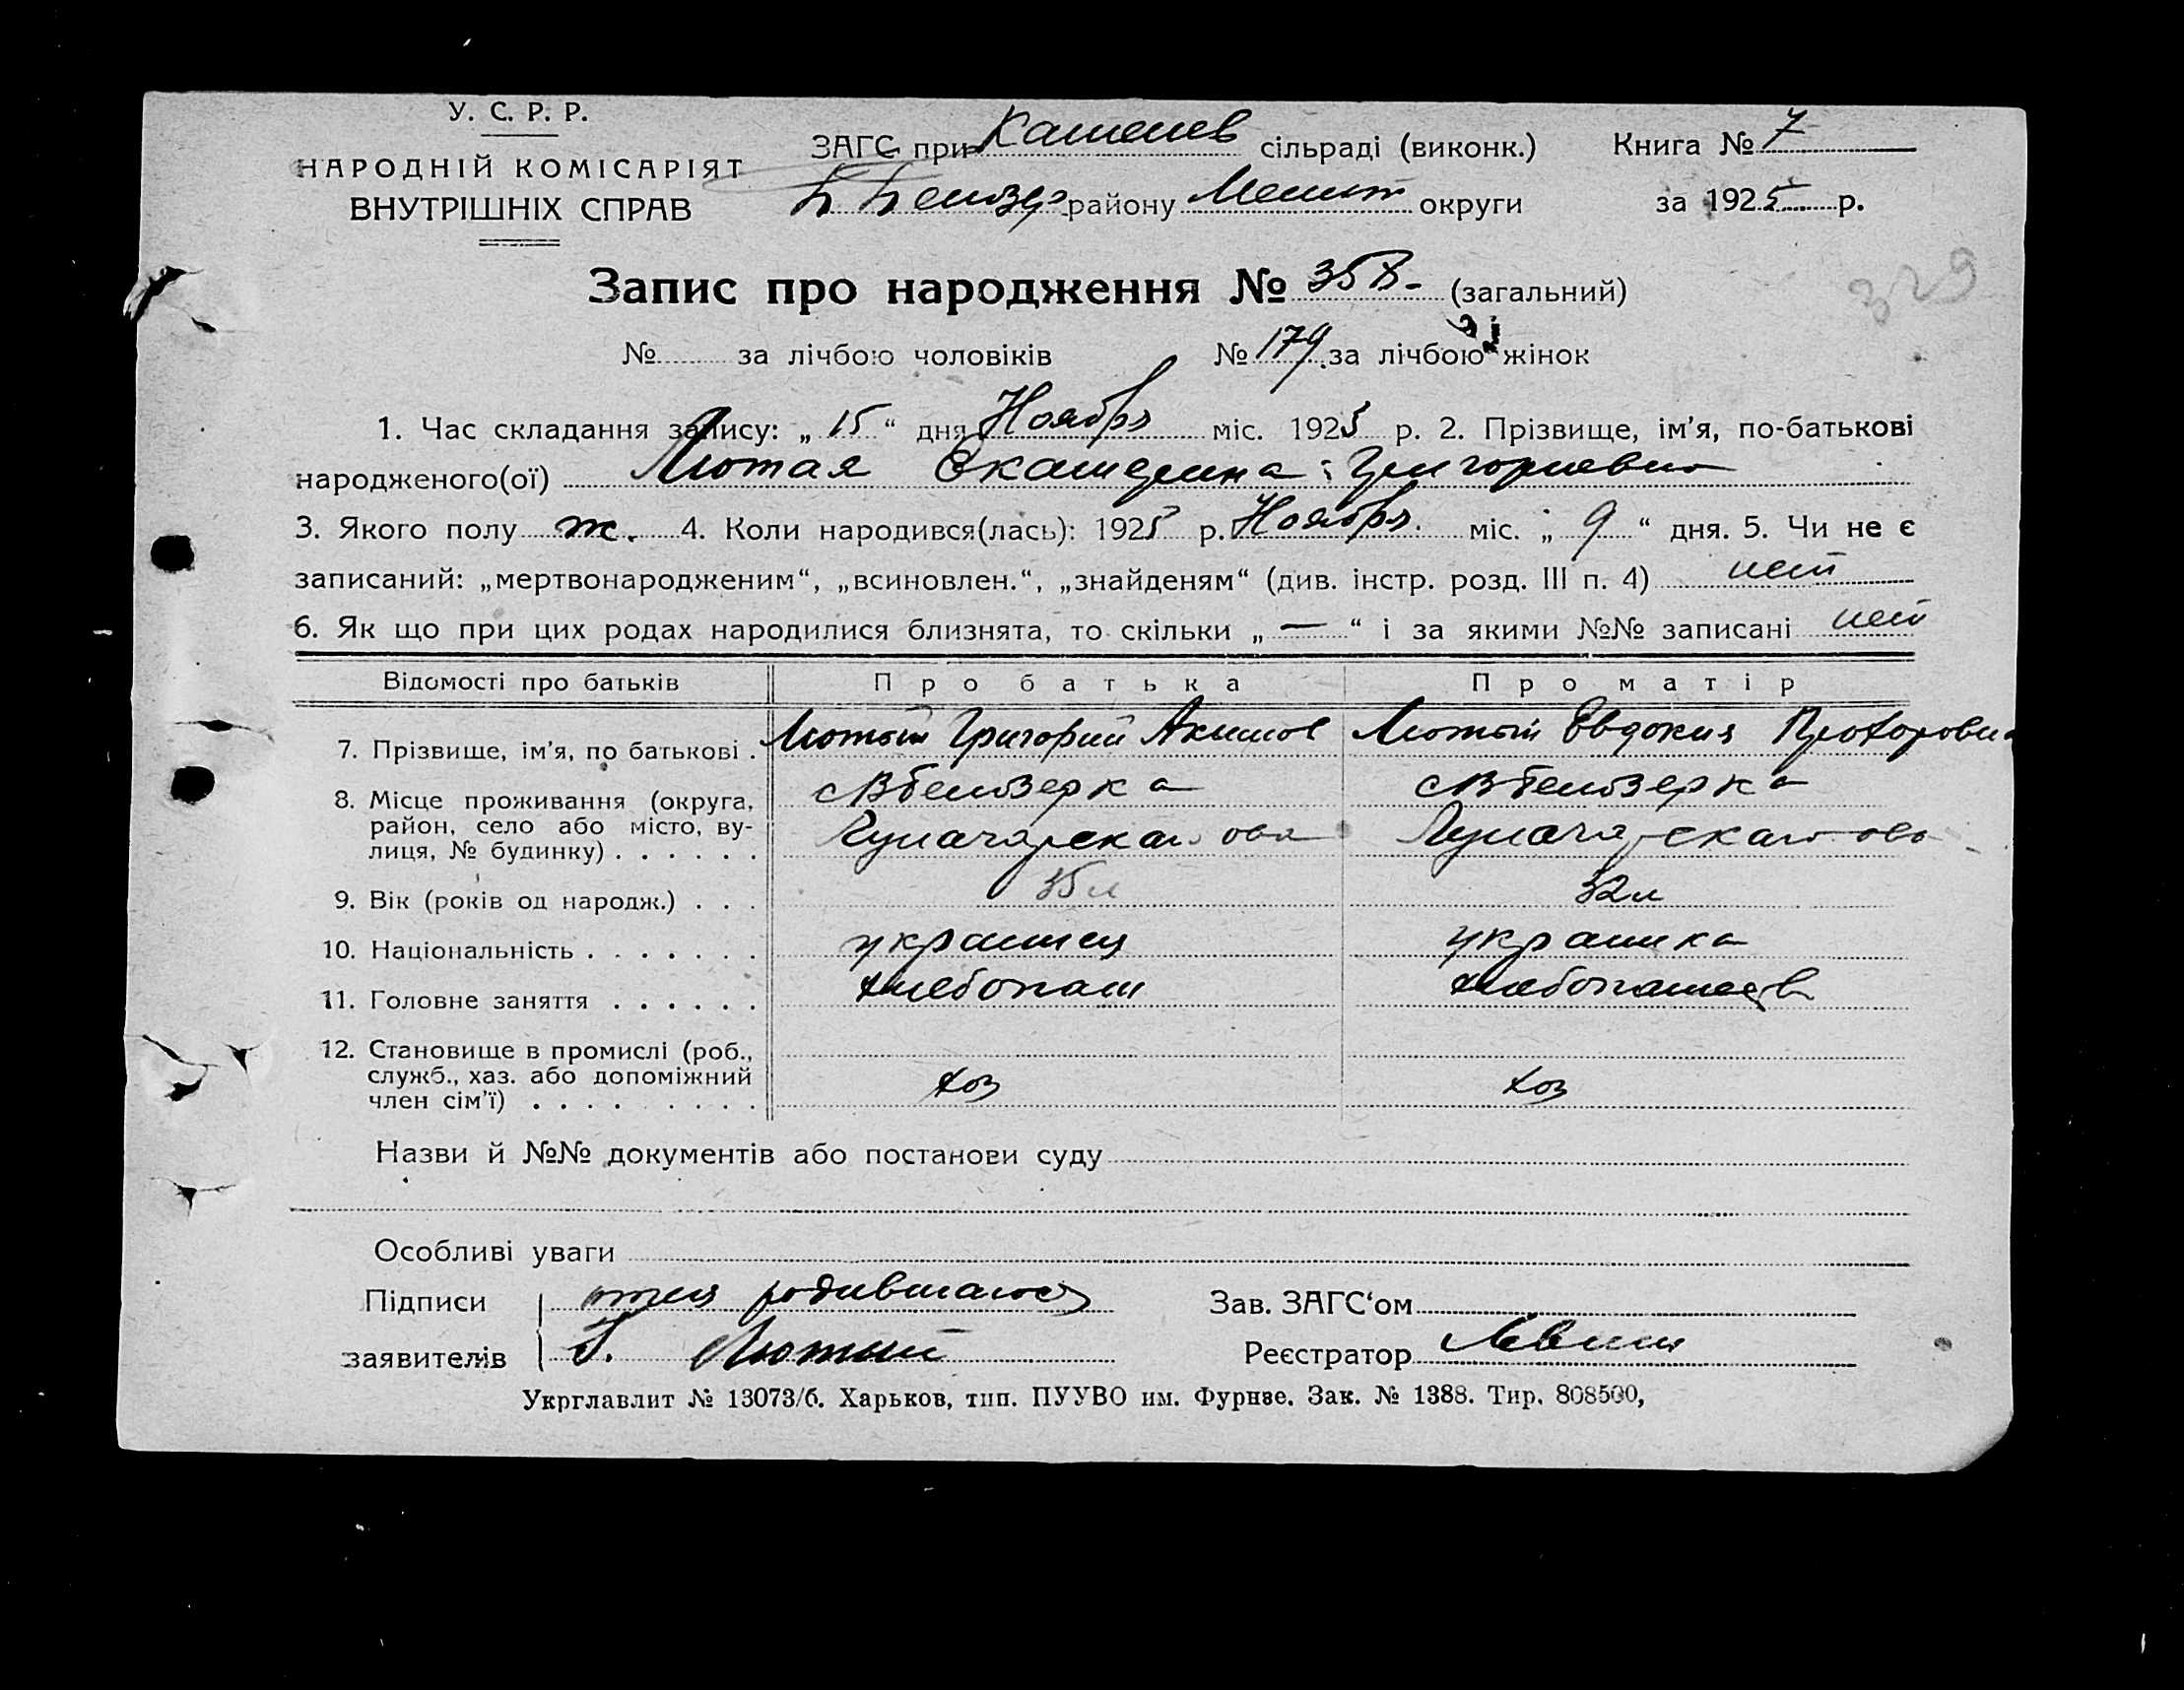 У. С. Р. Р.
НАРОДНІЙ КОМІСАРІЯТ
ВНУТРІШНІХ СПРАВ
ЗАГС при Каменев сільраді (виконк.) Книга № 7
району Мелит округи за 1925 р.
Запис про народження № 358 - (загальний)
329
№ за лічбою чоловіків № 179 за лічбою жінок
1. Час складання запису: „ 15 “ дня Ноября міс. 1925 р. 2. Прізвище, ім’я, по-батькові
народженого(ої) Лютая Екатерина Григориевна
3. Якого полу ж. 4. Коли народився(лась): 1925 р. Ноября. міс. „ 9 “ дня. 5. Чи не є
записаний: „мертвонародженим“, „всиновлен.“, „знайденям“ (див. інстр. розд. III п. 4) нет
6. Як що при цих родах народилися близнята, то скільки „ — “ і за якими №№ записані нет
Відомості про батьків Про батька Про матір
7. Прізвище, ім’я, по батькові . Лютый Григорий Акимов Лютый Евдокия Прохоровна
8. Місце проживання (округа, район, село або місто, вулиця, № будинку) . . . . . . с В белозерка с В белозерка
9. Вік (років од народж.) . . . 35 л 32 л
10. Національність . . . . . . . украинец украинка
11. Головне заняття . . . . . . хлебопаш
12. Становище в промислі (роб.,
служб., хаз. або допоміжний
член сім’ї) . . . . . . . . хоз хоз
Назви й №№ документів або постанови суду
Особливі уваги
Підписи отец родившагося Зав. ЗАГС‘ом
заявителів Лютый Реєстратор
Укрглавлит № 13073/б. Харьков, тип. ПУУВО им. Фурнзе. Зак. № 1388. Тир. 808500,